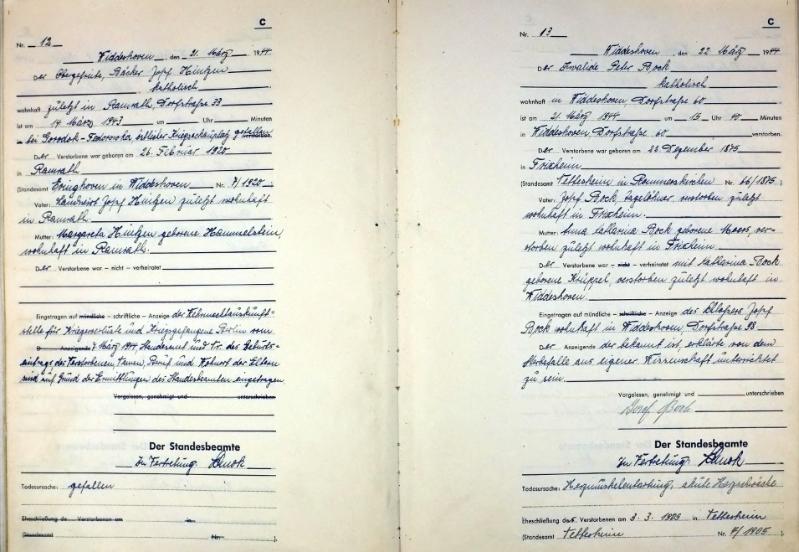 C
Nr. 12
Widdeshoven, den 21. März 1944
Der Obergefreite, Bäcker Josef Hintzen
katholisch
wohnhaft zuletzt in Ramrath, Dorfstraße 33
ist am 14. März 1943 um Uhr Minuten
bei Gorodok- östlicher Kriegsschauplatz gefallen
Der Verstorbene war geboren am 26. Februar 1920
in Ramrath
(Standesamt Evinghoven in Widdeshoven Nr. 7/1920
Vater: Landwirt Josef Hintzen zuletzt wohnhaft
in Ramrath
Mutter: Margareta Hintzen geborene Hammelstein,
wohnhaft in Ramrath.
Der Verstorbene war – nicht – verheiratet
Eingetragen auf mündliche – schriftliche – Anzeige der Wehrmachtauskunft-
stelle für Kriegsverluste und Kriegsgefangene Berlin vom
D Anzeigende 7. März 1944. Standesamt und Nr. des Geburts-
eintrags des Verstorbenen, Namen, Beruf und Wohnort der Eltern
sind auf Grund der Ermittlungen des Standesbeamten eingetragen
Vorgelesen, genehmigt und unterschrieben
Der Standesbeamte
In Vertretung:
Todesursache: gefallen
Eheschließung de Verstorbenen am in
(Standesamt Nr. ).
C
Nr. 13
Widdeshoven, den 22. März 1944
Der Invalide Peter Bock
katholisch
wohnhaft in Widdeshoven, Dorfstraße 60
ist am 21. März 1944 um 15 Uhr 40 Minuten
in Widdeshoven Dorfstraße 60 verstorben.
Der Verstorbene war geboren am 22. Dezember 1875
in Frixheim
(Standesamt Nettesheim in Rommerskirchen Nr. 66/1875)
Vater: Josef Bock, Tagelöhner, verstorben zuletzt
wohnhaft in Frixheim.
Mutter: Anna Katharina Bock geborene Moers, ver-
storben zuletzt wohnhaft in Frixheim
Der Verstorbene war – nicht – verheiratet mit Katharina Bock
geborene Krüppel, verstorben zuletzt wohnhaft in
Widdeshoven.
Eingetragen auf mündliche – schriftliche – Anzeige des Josef
Bock wohnhaft in Widdeshoven, Dorfstraße 98
Der Anzeigende der bekannt ist, erklärte von dem
Sterbefalle aus eigener Wissenschaft unterrichtet
zu sein.
Vorgelesen, genehmigt und unterschrieben
Josef Bock
Der Standesbeamte
In Vertretung:
Todesursache: Herzmuskelentartung, akute Herzschwäche
Eheschließung des Verstorbenen am 3. 3. 1905 in Nettesheim
(Standesamt Nettesheim Nr. /1905